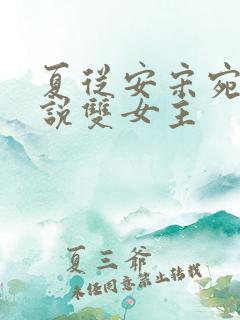 夏从安宋宛
說雙女主
夏三爺
未任同意禁止轉載